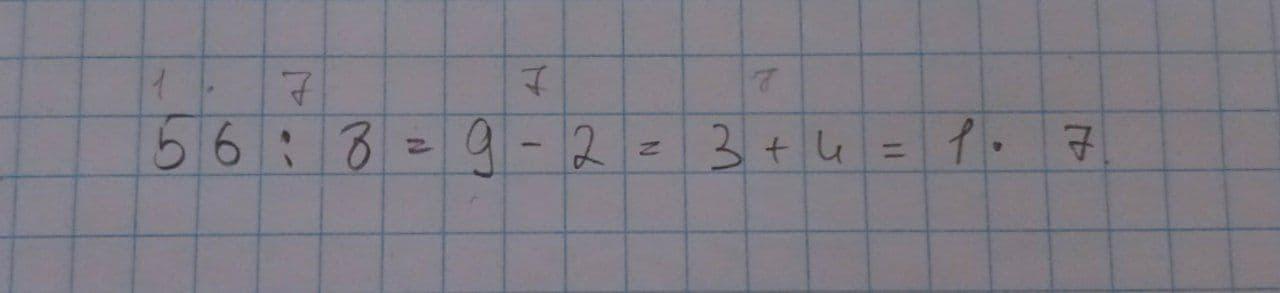 1 . 7 7 7
56 : 8 = 9 - 2 = 3 + 4 = 1 · 7